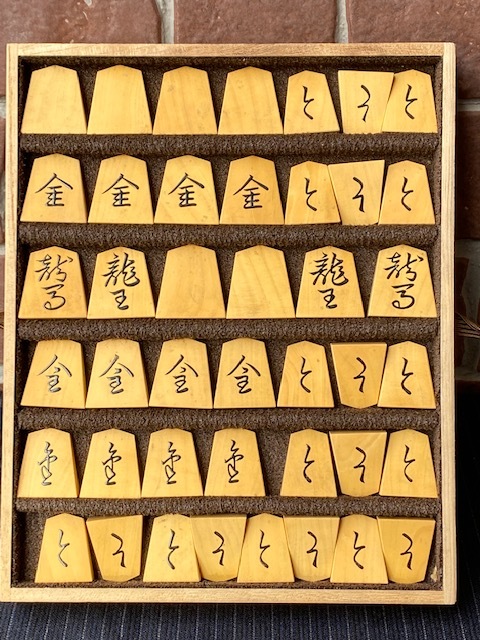 と と と
金 金 金 金 と と と
龍馬 龍王 龍王 龍馬
金 金 金 金 と と と
金 金 金 金 と と と
と と と と と と と と